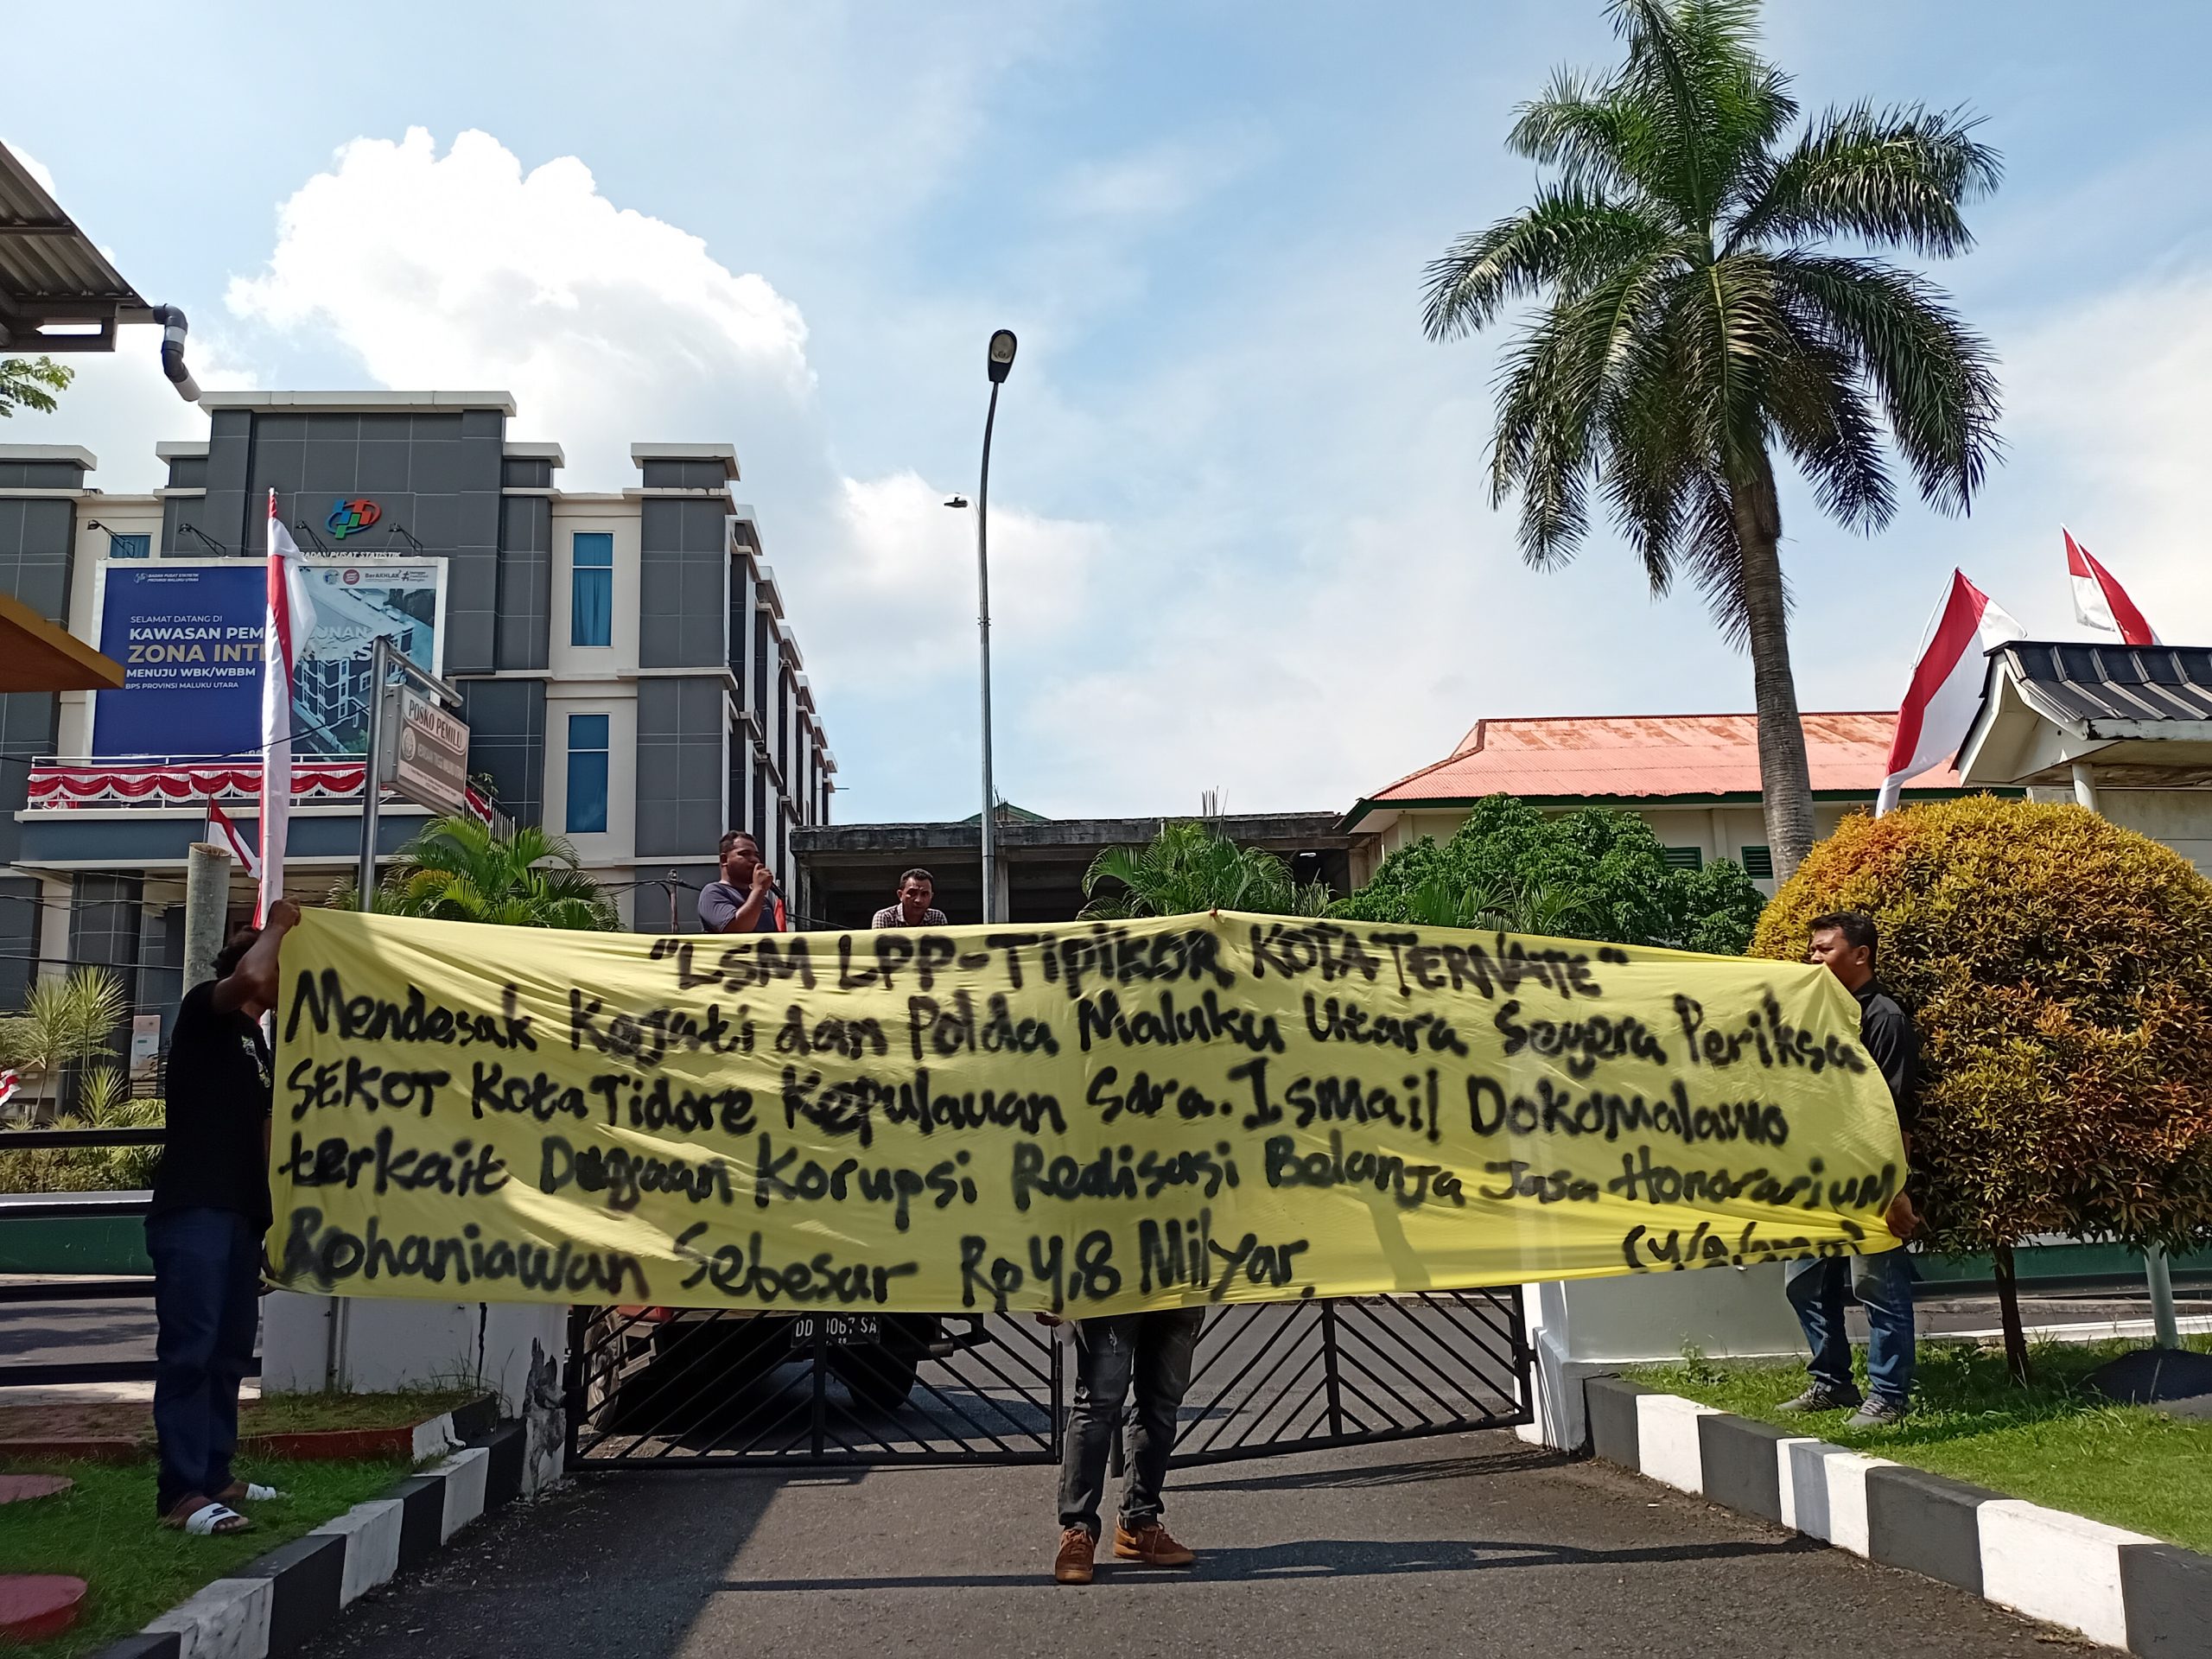 BADAN PUSAT STATISTIK
BADAN PUSAT STATISTIK
PROVINSI MALUKU UTARA
BerAKHLAK
SELAMAT DATANG DI
KAWASAN PEM UNAN
ZONA INT AS
MENUJU WBK/WBBM
BPS PROVINSI MALUKU UTARA
POSKO PEMILU
"LSM LPP-TIPIKOR KOTA TERNATE"
Mendesak Kejati dan Polda Maluku Utara Segera Periksa
SEKOT Kota Tidore Kepulauan Sdra. Ismail Dokomalawo
terkait Dugaan Korupsi Redisusi Belanja Jasa Honorarium
Rohaniawan Sebesar Rp 4,8 Milyar.
DD 8067 SA